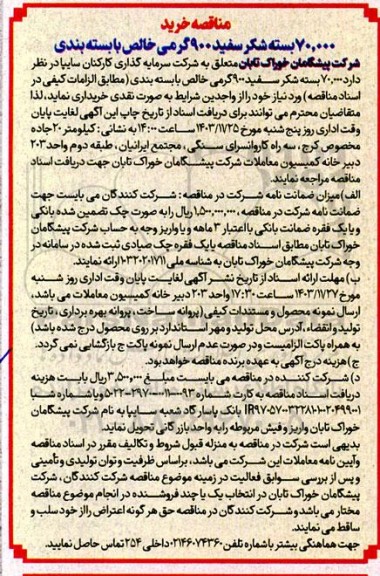 مناقصه خرید
۷۰,۰۰۰ بسته شکر سفید ۹۰۰ گرمی خالص با بسته بندی
شرکت پیشگامان خوراک تابان متعلق به شرکت سرمایه گذاری کارکنان سایپا در نظر
دارد ۷۰,۰۰۰ بسته شکر سـفید ۹۰۰گرمی خالص با بسته بندی (مطابق الزامات کیفی در
اسناد مناقصه) ورد نیاز خود را از واجدین شرایط به صورت نقدی خریداری نماید، لذا
متقاضیان محترم می توانند برای دریافت اسناد از تاریخ چاپ این آگهی لغایت پایان
وقت اداری روز پنج شنبه مورخ ۱۴۰۳/۱۱/۲۵ ساعت ۱۴:۰۰ به نشانی: کیلومتر ۲۰ جاده
مخصوص کرج ، سه راه کاروانسرای سـنگی ، مجتمع ایرانیان ، طبقه دوم واحد ۲۰۳
دبیر خانه کمیسیون معاملات شرکت پیشـگامان خوراک تابان جهت دریافت اسناد
مناقصه مراجعه نمایند.
الف) میزان ضمانت نامه شـرکت در مناقصه : شرکت کنندگان می بایست جهت
ضمانت نامه شرکت در مناقصه، ۱,۵۰۰,۰۰۰,۰۰۰ ریال را به صورت چک تضمین شده بانکی
و یا یک فقره ضمانت بانکی با اعتبار ۳ ماهه و یا واریز وجه به حساب شرکت پیشگامان
خوراک تابان مطابق اسـناد مناقصه یا یک فقره چک صیادی ثبت شده در سامانه در
وجه شرکت پیشگامان خوراک تابان به شناسه ملی ۱۰۳۲۰۲۰۱۷۱۱ ارائه نمایند.
ب) مهلت ارائه اسناد از تاریخ نشـر آگهی لغایـت پایان وقت اداری روز شـنبه
مورخ ۱۴۰۳/۱۱/۲۷ ساعت ۱۷:۳۰ واحد ۲۰۳ دبیر خانه کمیسیون معاملات می باشد،
ارسال نمونه محصول و مستندات کیفی (پروانه ساخت، پروانه بهره برداری ، تاریخ
تولید و انقضاء، آدرس محل تولید و مهر استاندارد بر روی محصول درج شده باشد)
به همراه پاکت الزامیست و در صورت عدم ارسال نمونه پاکت ج بازگشایی نمی گردد.
ج) هزینه درج آگهی به عهده برنده مناقصه خواهد بود.
د) شرکت کننده در مناقصه می بایست مبلغ ۳,۵۰۰,۰۰۰ ریال بابت هزینه
دریافت اسناد مناقصه به کارت شماره و یا شماره شبا
بانک پاسارگاد شعبه سایپا به نام شرکت پیشگامان
خوراک تابان واریز و فیش مربوطه را به واحد بازرگانی تحویل نماید.
بدیهی است شرکت در مناقصه به منزله قبول شروط و تکالیف مقرر در اسناد مناقصه
و آیین نامه معاملات این شـرکت می باشد، بر اساس ظرفیت و توان تولیدی و تأمینی
و پس از بررسی سـوابق فعالیت در زمینه موضوع مناقصه شرکت کنندگان ، شرکت
پیشگامان خوراک تابان در انتخاب یک یا چند فروشـنده در انجام موضوع مناقصه
مختار می باشد و شرکت کنندگان در مناقصه حق هر گونه اعتراض را از خود سلب و
ساقط می نمایند.
جهت هماهنگی بیشتر با شماره تلفن ۰۲۱۴۶۰۷۴۳۶۰ داخلی ۲۵۴ تماس حاصل نمایید.